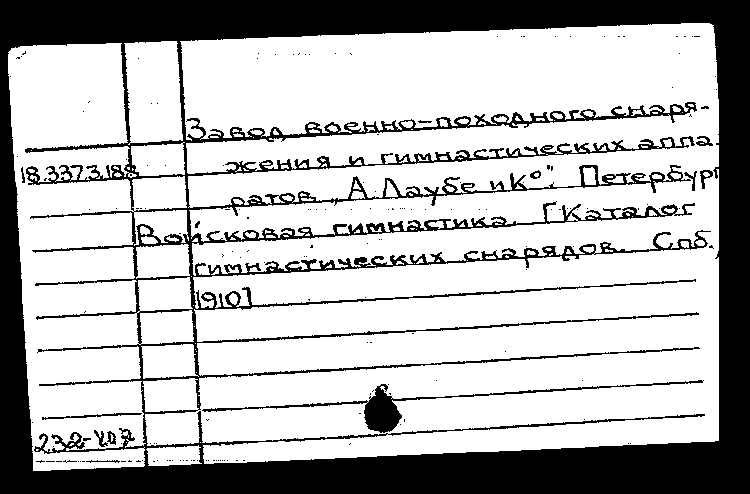 Завод военно-походного снаря-
18.3373.188 жения и гимнастических аппа-
ратов „А. Лаубе и К°". Петербург
Войсковая гимнастика. [Каталог
гимнастических снарядов. Спб.,
1910]